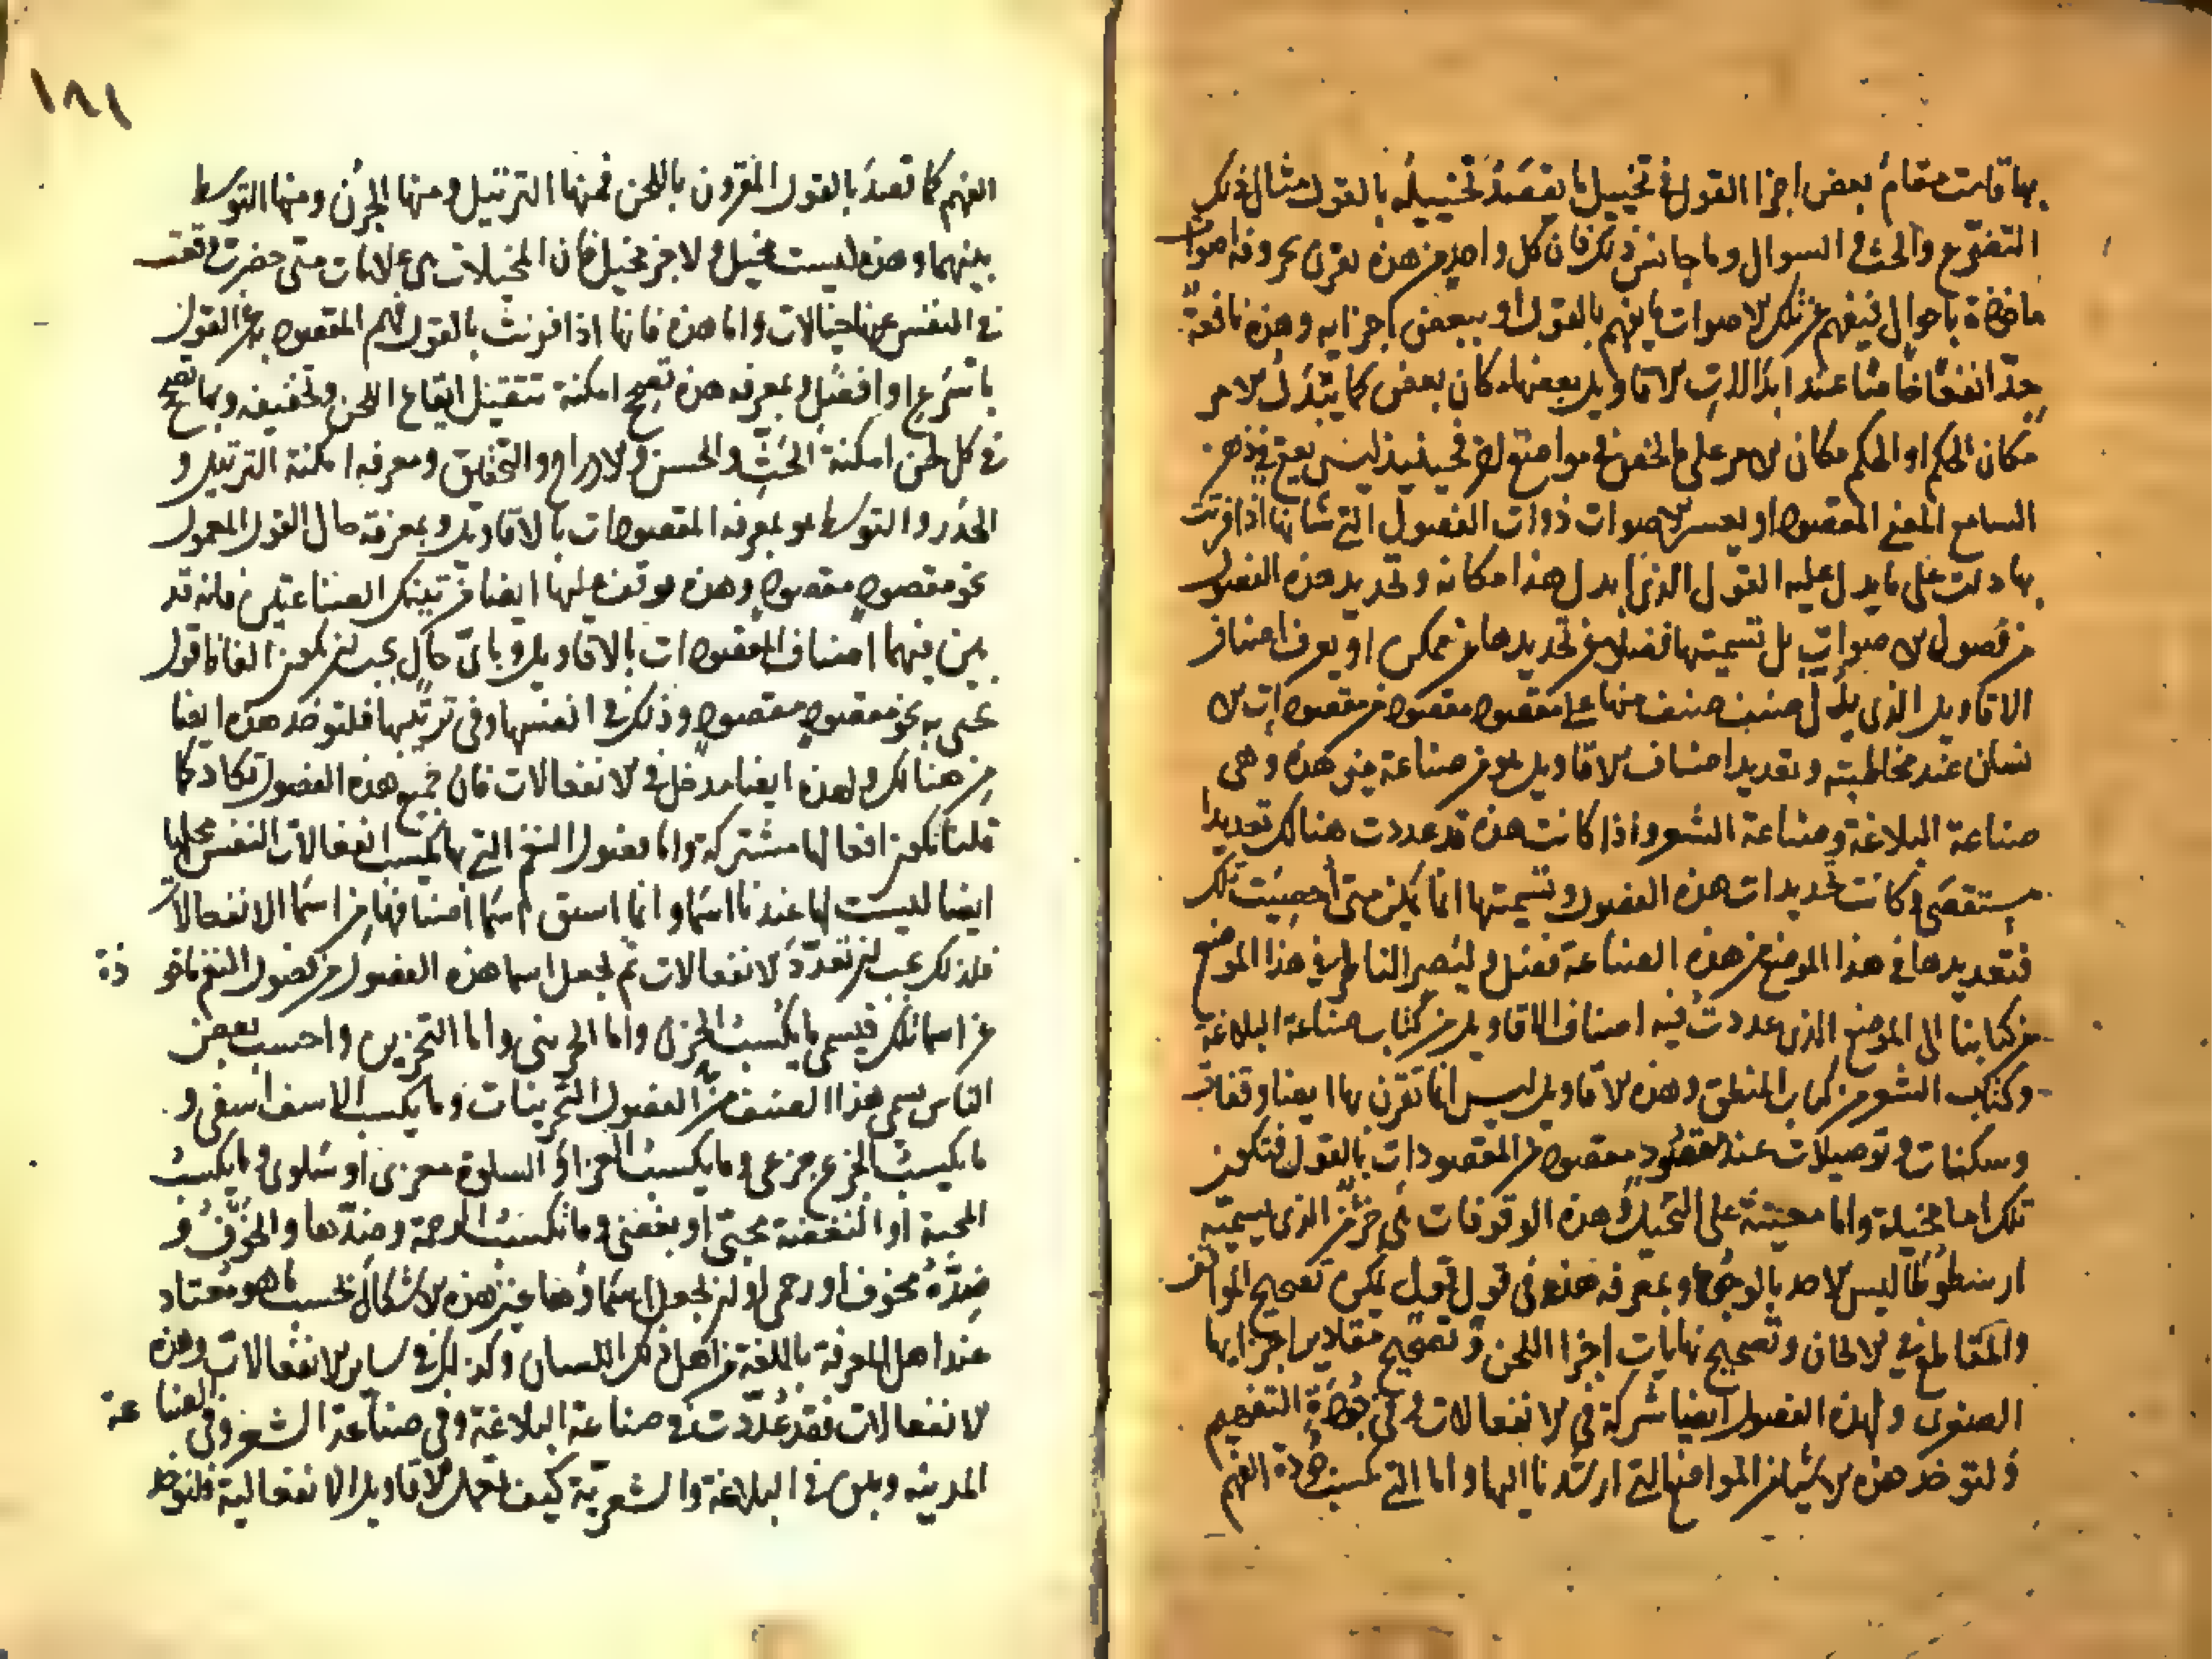 بها قامت مقام بعض اجزا القول في تخييل ما يقصد تخييله بالقول مثال ذلك
التضرع والحث في السوال وما جانس ذلك فان كل واحد من هذه يقرن بحروفه اصوات
ماخوذة باحوال فيفهم عن تلك الاصوات ما يفهم بالقول او ببعض اجزايه وهذه نافعة
جدا نفعا خاصا عند ابدالات الاقاويل بعضها مكان بعض كما يبدل الامر
مكان الحكم او الحكم مكان الامر على ما لخص في مواضع اخر فحينئذ ليس يقع في ذهن
السامع المعنى المقصود او يعسر الاصوات ذوات الفصول التي شانها اذا قرنت
بها دلت على ما يدل عليه القول الذي ابدل هذا مكانه وتحديد هذه الفصول
من فصول الاصوات بل تسميتها فضلا عن تحديدها غير ممكن او يعرف اصناف
الاقاويل الذي يدل صنف صنف منها على مقصود مقصود من مقصودات الا
نسان عند مخاطبته وتعديد اصناف الاقاويل هو من صناعة غير هذه وهي
صناعة البلاغة وصناعة الشعر واذا كانت هذه قد عددت هنالك تعديدا
مستقصى وكانت تحديدات هذه الفصول وتسميتها انما يمكن متى احصيت تلك
فتعديدها في هذا الموضع من هذه الصناعة فضل وليصر الناظر في هذا الموضع
من كتابنا الى الموضع الذي عددت فيه اصناف الاقاويل من كتاب صناعة البلاغة
وكتاب الشعر من كتاب المنطق وهذه الاقاويل ليس انما تقرن بها ايضا وقفات
وسكنات وتوصيلات عند مقصود مقصود من المقصودات بالقول فتكون
تلك اما مخيلة واما معينة على التخيل وهذه الوقوفات هي جزء من الذي يسميه
ارسطوطاليس الاخذ بالوجوه وبمعرفة هذه في قول قول يمكن تصحيح المواقف
والمقاطع في الالحان وتصحيح نهايات اجزا اللحن وتصحيح مقادير اجزايها
الصغرى ولهذه الفصول ايضا شركة في الانفعالات وفي جودة التفهيم
ولتوخذ هذه الاشيا من المواضع التي ارشدنا اليها واما التي تكسب جودة الفهم
١٨١
الفهم كما تصد بالقول المقرون باللحن فمنها الترتيل ومنها الحدر ومنها التوسط
بينهما وهذه ليست تخييل ولا جز مخيل فان المخيلات هي علامات متى حضرت وقفت
في النفس عنها خيالات واما هذه فانها اذا قرنت بالقول فهم المقصود به عن القول
باسرع او افضل وبمعرفه هذه تصح امكنة تثقيل ايقاع اللحن وتخفيفه وبها تصح
في كل لحن امكنة الحث والحبس والادراج والتحقيق ومعرفه امكنة الترتيل و
الحدر والتوسط هو بمعرفه المقصودات بالاقاويل وبمعرفة حال القول المعمول
نحو مقصود مقصود وهذه يوقف عليها ايضا من تينك الصناعتين فانه قد
بين فيهما اصناف المقصودات بالاقاويل وباي حال يجب ان يكون الفاظ قول
يحتى به نحو مقصود مقصود وذلك في انفسها وفي ترتيبها فلتوخذ هذه ايضا
من هنالك ولهذه ايضا مدخل في الانفعالات فان جميع هذه الفصول تكاد كما
قلنا تكون افعالها مشتركة واما فصول النغم التي بها تكسب انفعالات النفس فجلها
ايضا ليست لها عندنا اسما وانما اشتق اسما اصنافها من اسما الانفعالات
فلذلك يجب ان تعدد الانفعالات ثم نجعل اسما هذه الفصول من فصول النغم ماخوذة
من اسما تلك فيسمى ما يكسب الحزن واما الحزني واما التحزين واحسب بعض
الناس يسمي هذا الصنف من الفصول التحزينات وما يكسب الاسف اسفي و
ما يكسب الجزع جزعي وما يكسب العزا او السلوة معزي او سلوى وما يكسب
المحبة او البغضة محبتي او بغضي وما تكسب الرحمة وضدها والخوف و
ضده مخوف او رحمي او ان نجعل اسماوها غير هذه الاشكال بحسب ما هو معتاد
عند اهل المعرفة باللغة من اهل ذلك اللسان وكذلك في ساير الانفعالات وهذه
الانفعالات فقد عددت في صناعة البلاغة وفي صناعة الشعر وفي الصناعة
المدنيه وبين في البلاغة والشعرية كيف تعمل الاقاويل الانفعالية فلتوخذ